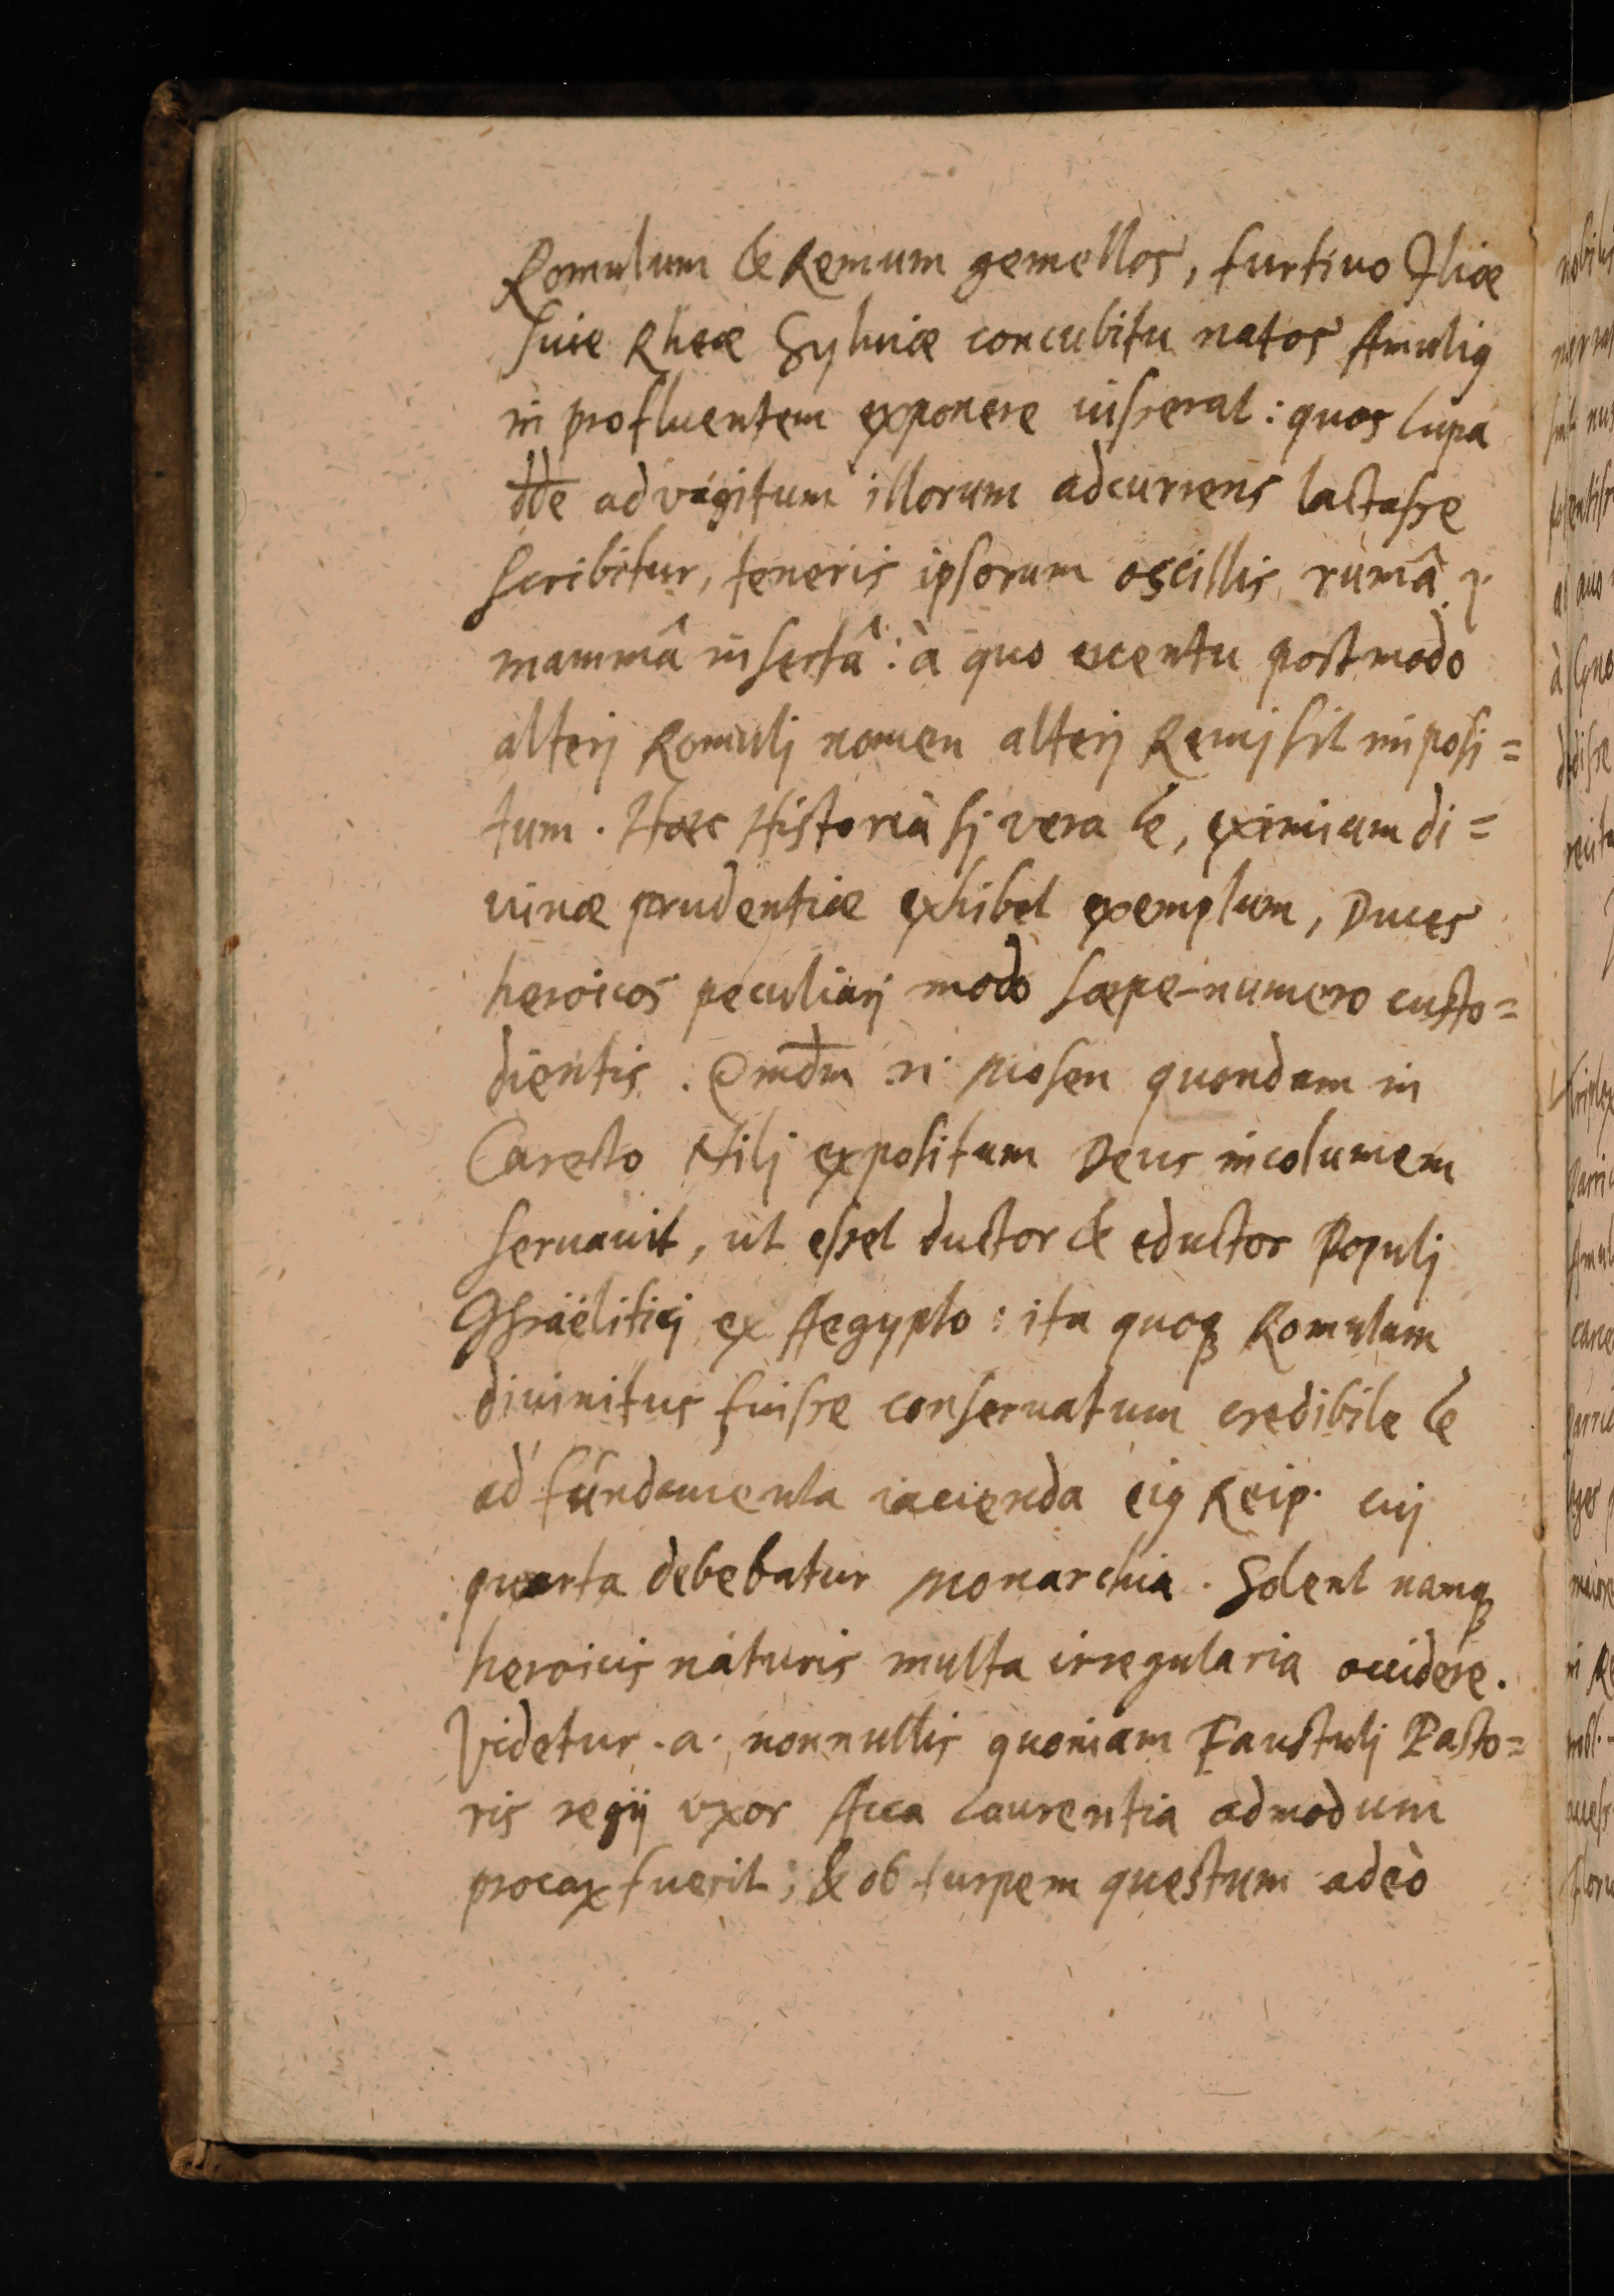 Romulum & Remum gemellos, furtivo Iliæ
siue Rheæ Sylviæ concubitu natos Amuliꝰ
in profluentem exponere iusserat: quos lupa
ad vagitum illorum adcurrens lactasse
scribitur, teneris ipsorum oscillis, rumâ
mammâ insertâ: à quo euentu postmodo
alterj Romulj nomen alterj Remj sit imposi=
tum. Hæc Historia sj vera ē, eximium di=
uinæ prudentiæ exhibet exemplum, Duces
heroicos peculiarj modo sæpe-numero custo=
dientis. .n. Mosen quondam in
Carecto Nilj expositum Deus incolumem
seruauit, ut esset ductor & eductor Populj
Israëliticj ex Aegypto: ita quoqꝫ Romulum
diuinitus fuisse conseruatum credibile ē
ad fundamenta iacienda eiꝰ Reip. cuj
quarta debebatur Monarchia. Solent namqꝫ
heroicis naturis multa irregularia accidere.
Videtur .a. nonnullis quoniam Faustulj Pasto=
ris regij vxor Acca Laurentia admodum
procax fuerit; & ob turpem questum adeò